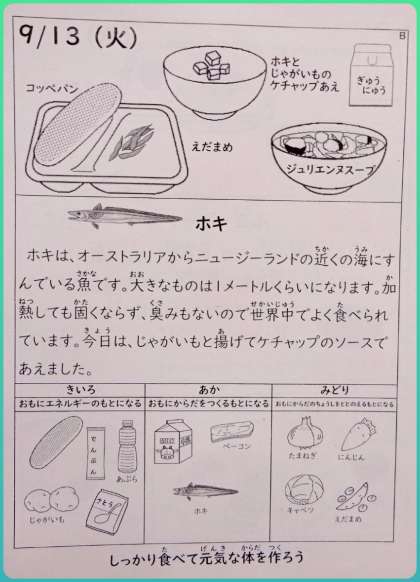 9/13（火）
B
コッペパン
えだまめ
ホキと
じゃがいもの
ケチャップあえ
ぎゅう
にゅう
ジュリエンヌスープ
ホキ
ホキは、オーストラリアからニュージーランドの近くの海にす
んでいる魚です。大きなものは1メートルくらいになります。加
熱しても固くならず、臭みもないので世界中でよく食べられ
ています。今日は、じゃがいもと揚げてケチャップのソースで
あえました。
きいろ
おもにエネルギーのもとになる
でんぷん
あぶら
じゃがいも
さとう
あか
おもにからだをつくるもとになる
ベーコン
ホキ
みどり
おもにからだのちょうしをととのえるもとになる
たまねぎ
にんじん
キャベツ
えだまめ
しっかり食べて元気な体を作ろう